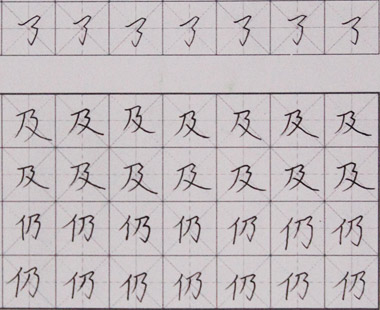 及及及及及及及
及及及及及及及
仍仍仍仍仍仍仍
仍仍仍仍仍仍仍